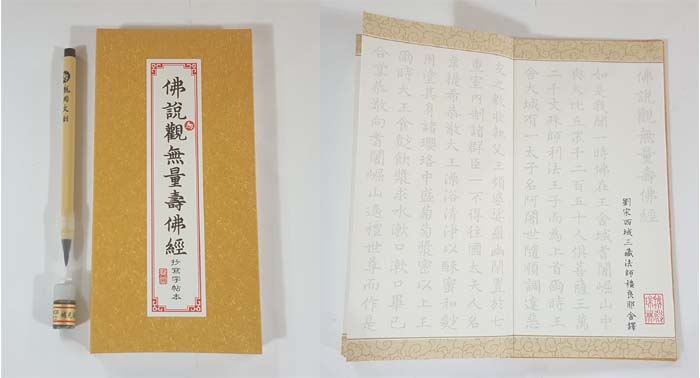 佛說觀無量壽佛經
抄寫字帖本
佛說觀無量壽佛經
劉宋西域三藏法師畺良耶舍譯
如是我聞一時佛在王舍城耆闍崛山中
與大比丘眾千二百五十人俱菩薩三萬
二千文殊師利法王子而為上首爾時王
舍大城有一太子名阿闍世隨順調達惡
友之教收執父王頻婆娑羅幽閉置於七
重室內制諸群臣一不得往國太夫人名
韋提希恭敬大王澡浴清淨以酥蜜和麨
用塗其身諸瓔珞中盛葡萄漿密以上王
爾時大王食麨飲漿求水漱口漱口畢已
合掌恭敬向耆闍崛山遙禮世尊而作是